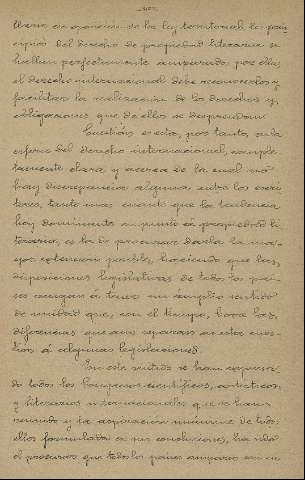 llena en oposición de la ley territorial los prin-
cipios del derecho de propiedad literaria se
hallen perfectamente amparados, por ella,
el derecho internacional debe reconocerlos y
facilitar la realización de los derechos y
obligaciones que de ellos se desprendan.
Cuestión es esta, por tanto, en la
esfera del derecho internacional, comple-
tamente clara y acerca de la cual no
hay discrepancia alguna entre los escri-
tores, tanto mas cuanto que la tendencia
hoy dominante en punto á propiedad li-
teraria, es la de procurar darla la ma-
yor extension posible, haciendo que las
disposiciones legislativas de todos los pai-
ses vengan á tener un amplio sentido
de unidad que, con el tiempo, borre las
diferencias que aun separan en esta cues-
tión á algunas legislaciones.
En este sentido se han expresa-
do todos los Congresos cientificos, artisticos,
y literarios internacionales que se han
reunido y la aspiracion unanime de todos
ellos formulada en sus conclusiones, ha sido
el procurar que todos los paises amparen en su